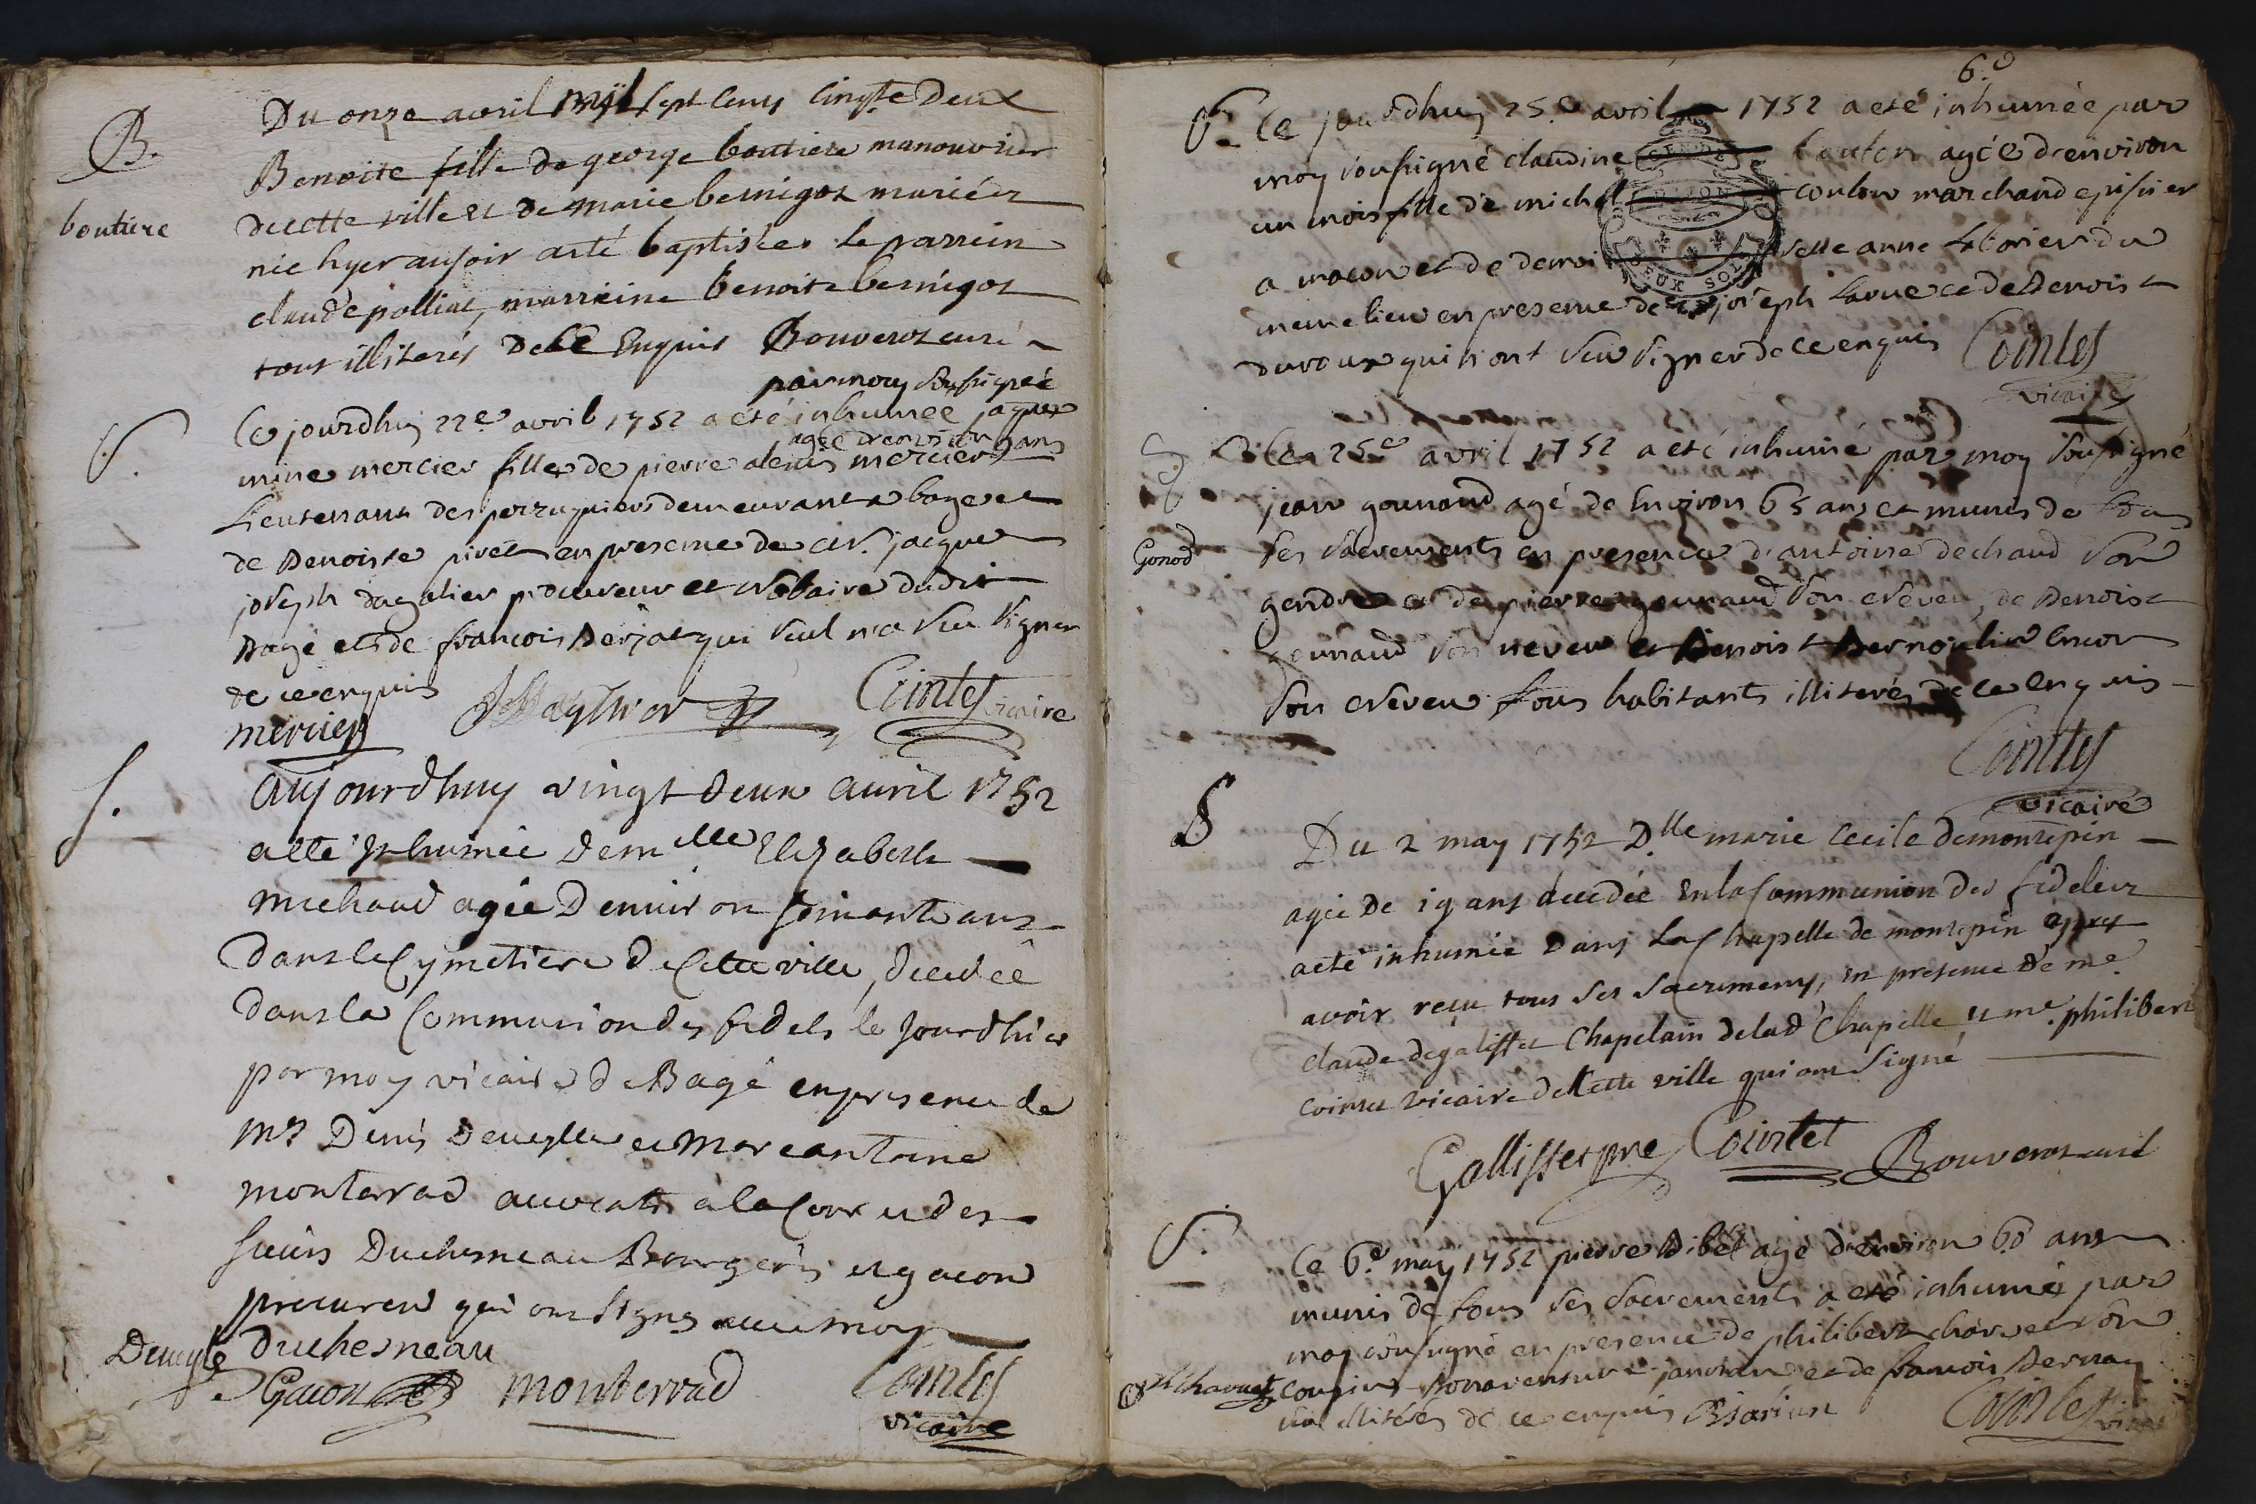 B.
boutiere
Du onze avril mil sept cens cinqte Deux
Benoite fille de george boutiere manouvrier
de cette ville et de marie bernigot mariés
née hyer au soir a eté baptisée le parrein
claude polliat, marreine benoite bernigot
tous illiterés de ce Enquis Bouverot curé
par moy soussigné
S.
Ce jourdhuy 22e avril 1752 a eté inhumée jaque
agée d'environ ans
mine mercier fille de pierre alexis mercier
Lieutenant des perruquiers demeurant a bage et
de Benoiste pivet en presence de Sr. jacque
joseph dagalier procureur et Notaire dudit
Bagé et de françois Berjat qui seul n'a sceu signer
de ce enquis
mercier Cointet vicaire
S.
Aujourdhuy vingt deux avril 1752
a eté Inhumée demlle Elizabeth
michaud agée D'environ soixante ans
dans le Cymetiere de Cette ville, decedée
dans la Communion des fidels le Jourd'hier
par moy vicaire de Bagé en presence de
Mrs Denis Deveyle et Marc antoine
monterrad avocats à la Cour et des
sieurs Duchesneau Bourgeois et gacon
procureur qui ont signés avec moy
Deveyle duchesneau
Gacon monterrad Cointet
vicaire
6e
S. Ce jourdhuy 25e avril 1752 a eté inhumée par
moy soussigné claudine coulon agée d'environ
un mois fille de michel coulon marchand episier
GEN DE DIJON
DEUX SOLS
a macon et de demoiselle anne
meme lieu en presence de joseph Larue et de Benoist
duroux qui n'ont sceu signer de ce enquis Cointet
vicaire
Gonod
le 25e avril 1752 a eté inhumé par moy soussigné
jean gounand agé de Environ 65 ans et munis de tous
ses sacrements en presence d'antoine dechaud son
gendre et de pierre gounand son neveu, de Benoist
gounand son neveu et Benoist Bernoulin encor
son neveu tous habitants illiterés de ce enquis
Cointet
vicaire
S
Du 2 may 1752 Dlle marie Cecile demontepin
agée De 19 ans decedée en la Communion des fideles
a eté inhumée dans La Chapelle de montepin apres
avoir reçu tous ses sacremens, en presence de me.
claude degalisset Chapelain de lad Chapelle et me. philibert
cointet vicaire de Cette ville qui ont signé
Gallisset pre Cointet Bouverot curé
S.
Ce 6e may 1752 pierre Bibet agé d'environ 60 ans
munis de tous ses sacrements a eté inhumé par
moy soussigné en présence de philibert charvet son
cousin Bonaventure janvier et de francois Bernay
illiterés de ce enquis
Charvet Cointet